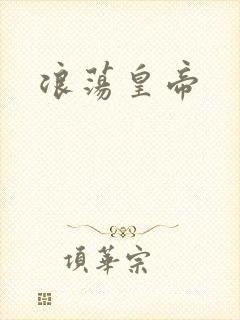 浪蕩皇帝
項華宗